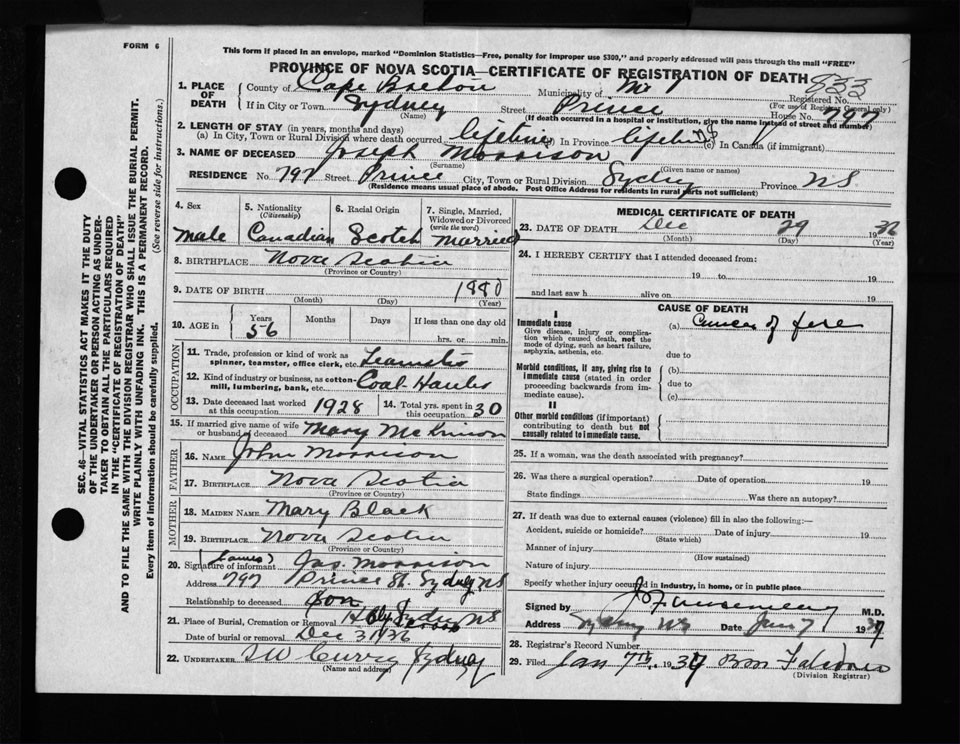 FORM 6
This form if placed in an envelope, marked "Dominion Statistics—Free, penalty for improper use $300," and properly addressed will pass through the mail "FREE"
PROVINCE OF NOVA SCOTIA—CERTIFICATE OF REGISTRATION OF DEATH
833
1. PLACE OF DEATH
County of Cape Breton Municipality of No 1 Registered No.
(For use of Registrar General only)
If in City or Town Sydney Street Prince House No. 797
(Name) (If death occurred in a hospital or institution, give the name instead of street and number)
2. LENGTH OF STAY (in years, months and days)
(a) In City, Town or Rural Division where death occurred lifetime (b) In Province lifetime (c) In Canada (if immigrant)
3. NAME OF DECEASED Joseph Morrison
(Surname) (Given name or names)
RESIDENCE No. 797 Street Prince City, Town or Rural Division Sydney Province NS
(Residence means usual place of abode. Post Office Address for residents in rural parts not sufficient)
4. Sex male
5. Nationality (Citizenship) Canadian
6. Racial Origin Scotch
7. Single, Married, Widowed or Divorced (write the word) married
8. BIRTHPLACE Nova Scotia
(Province or Country)
9. DATE OF BIRTH 1880
(Month) (Day) (Year)
10. AGE in Years 56 Months Days If less than one day old
hrs. or min.
OCCUPATION
11. Trade, profession or kind of work as spinner, teamster, office clerk, etc. Teamster
12. Kind of industry or business, as cotton-mill, lumbering, bank, etc. Coal Hauler
13. Date deceased last worked at this occupation 1928
14. Total yrs. spent in this occupation 30
15. If married give name of wife or husband of deceased Mary McKinnon
FATHER
16. NAME John Morrison
17. BIRTHPLACE Nova Scotia
(Province or Country)
MOTHER
18. MAIDEN NAME Mary Black
19. BIRTHPLACE Nova Scotia
(Province or Country)
(James)
20. Signature of informant Jas. Morrison
Address 797 Prince St. Sydney NS
Relationship to deceased Son
21. Place of Burial, Cremation or Removal Sydney NS
Date of burial or removal Dec 31 1936
22. UNDERTAKER Curry Sydney
(Name and address)
MEDICAL CERTIFICATE OF DEATH
23. DATE OF DEATH Dec 29 1936
(Month) (Day) (Year)
24. I HEREBY CERTIFY that I attended deceased from:
19 to 19
and last saw h alive on 19
CAUSE OF DEATH
I
Immediate cause
Give disease, injury or complication which caused death, not the mode of dying, such as heart failure, asphyxia, asthenia, etc.
(a) Cancer of
due to
Morbid conditions, if any, giving rise to immediate cause (stated in order proceeding backwards from immediate cause).
(b)
due to
(c)
II
Other morbid conditions (if important) contributing to death but not causally related to immediate cause.
25. If a woman, was the death associated with pregnancy?
26. Was there a surgical operation? Date of operation 19
State findings Was there an autopsy?
27. If death was due to external causes (violence) fill in also the following:—
Accident, suicide or homicide? Date of injury 19
(State which)
Manner of injury
(How sustained)
Nature of injury
Specify whether injury occurred in Industry, in home, or in public place
Signed by M.D.
Address Sydney NS Date Jan 7 1937
28. Registrar's Record Number
29. Filed Jan 7th 1937
(Division Registrar)
SEC. 46—VITAL STATISTICS ACT MAKES IT THE DUTY
OF THE UNDERTAKER OR PERSON ACTING AS UNDER-
TAKER TO OBTAIN ALL THE PARTICULARS REQUIRED
IN THE "CERTIFICATE OF REGISTRATION OF DEATH"
AND TO FILE THE SAME WITH THE DIVISION REGISTRAR WHO SHALL ISSUE THE BURIAL PERMIT.
WRITE PLAINLY WITH UNFADING INK. THIS IS A PERMANENT RECORD.
Every item of information should be carefully supplied. (See reverse side for instructions.)